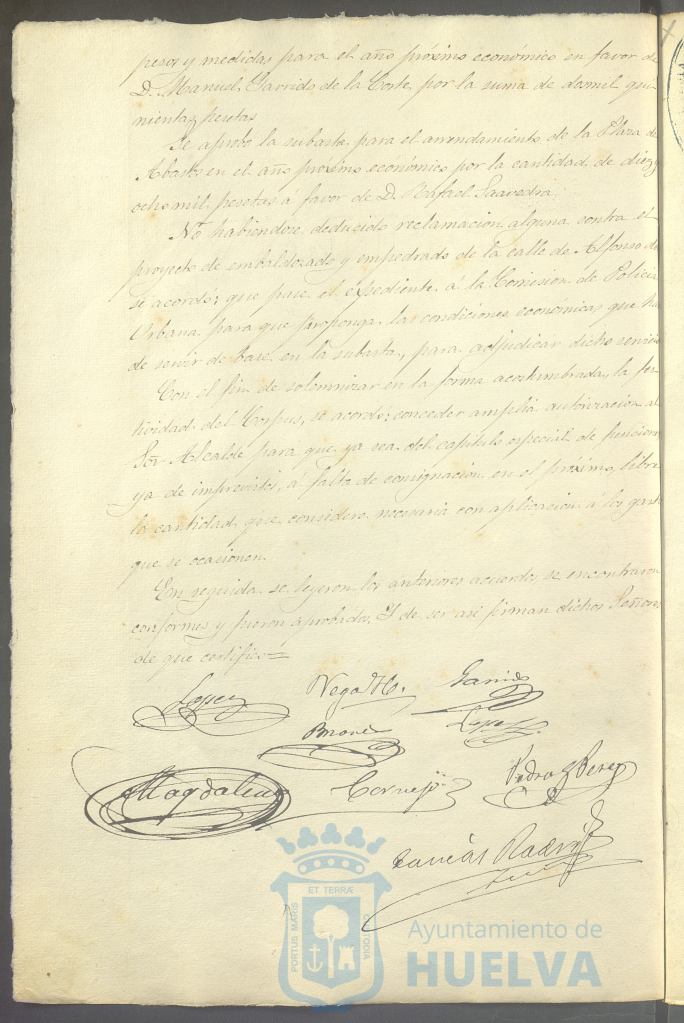 pesos y medidas para el año próximo económico en favor de
D. Manuel Garrido de la Corte, por la suma de dosmil qui-
nientas pesetas
Se aprobó la subasta para el arrendamiento de la Plaza de
Abastos en el año próximo económico por la cantidad de diez y
ocho mil pesetas á favor de D. Rafael Saavedra.
No habiendose deducido reclamacion alguna contra el
proyecto de embaldozado y empedrado de la calle de Alfonso
se acordó: que pase el expediente á la Comision de Policia
Urbana para que proponga las condiciones económicas que ha
de servir de base en la subasta, para adjudicar dicho servicio
Con el fin de solemnizar en la forma acostumbrada, la fes-
tividad del Corpus, se acordó: conceder amplia autorizacion al
Sor. Alcalde para que ya sea del capitulo especial de funciones
ya de imprevistos, á falta de consignacion en el próximo, libre
la cantidad que considere necesaria con aplicacion á los gastos
que se ocasionen.
En seguida se leyeron los anteriores acuerdos, se encontraron
conformes y fueron aprobados. Y de ser asi firman dichos Señores
de que certifico=
Lopez Vega H. Garrido
Lopez
Magdalena Cornejo Pedro G Perez
ET TERRÆ
PORTUS MARIS
CUSTODIA
Ayuntamiento de
HUELVA